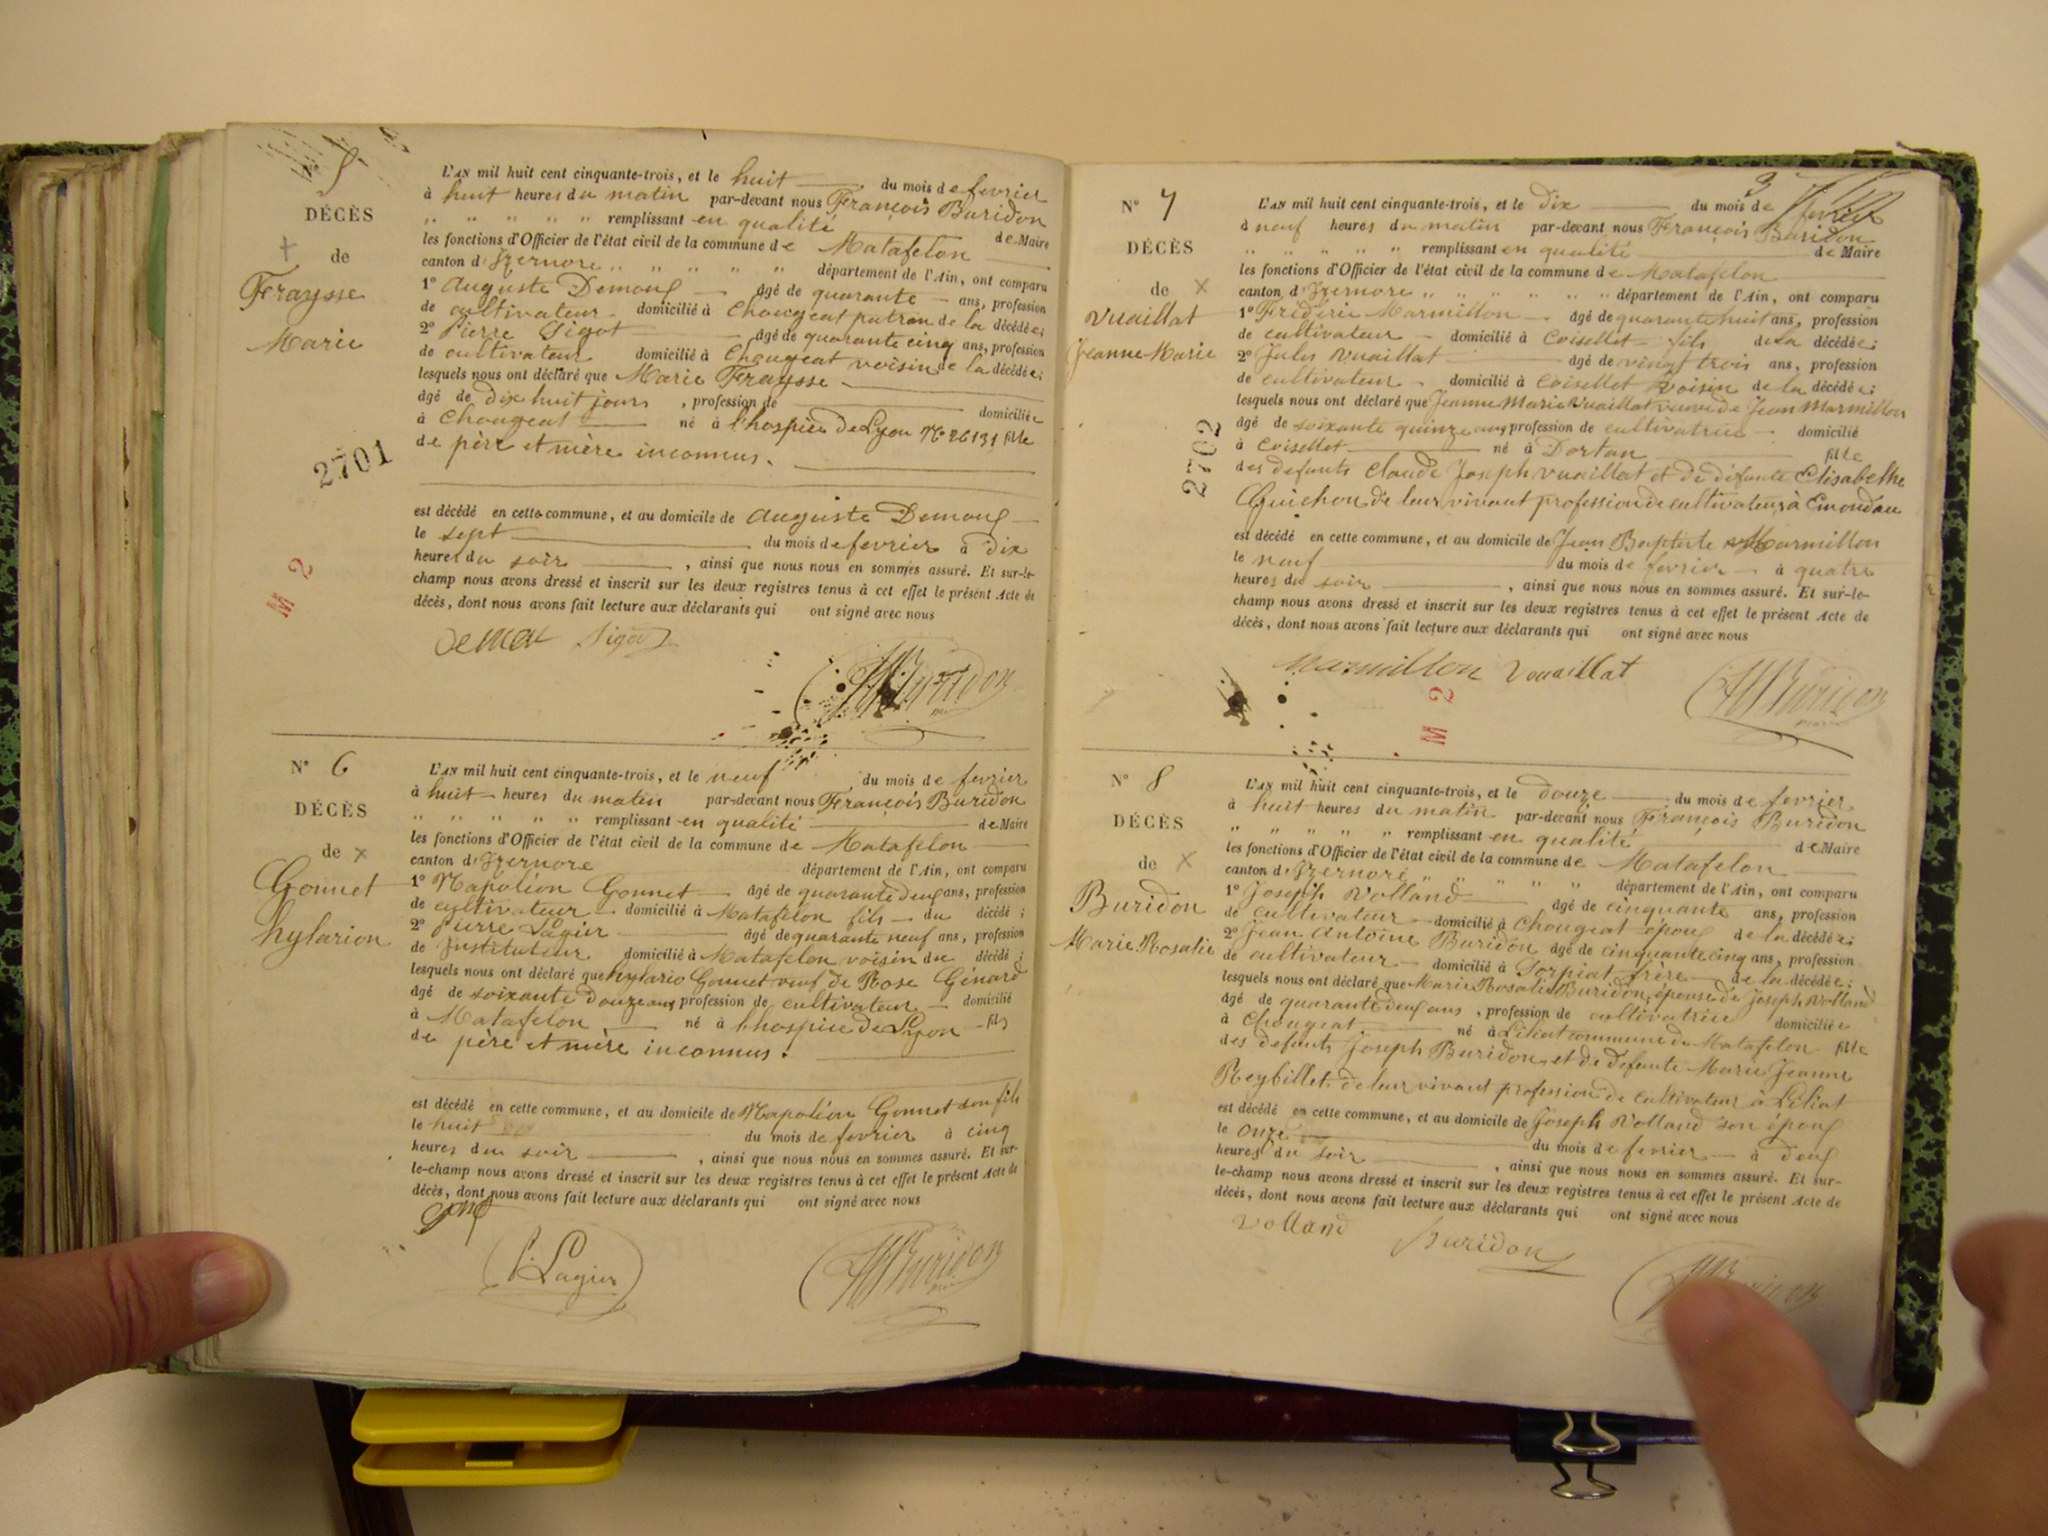 5
DÉCÈS
de
Fraysse
Marie
2701
M 2
L'AN mil huit cent cinquante-trois, et le huit du mois de fevrier
à huit heures du matin par-devant nous François Buridon
" " " " " remplissant en qualité de Maire
les fonctions d'Officier de l'état civil de la commune de Matafelon
canton d'Izernore " " " " " département de l'Ain, ont comparu
1° Auguste Demoul âgé de quarante ans, profession
de cultivateur domicilié à Chougeat patron de la décédée;
2° Pierre Sigot âgé de quarante cinq ans, profession
de cultivateur domicilié à Chougeat voisin de la décédée;
lesquels nous ont déclaré que Marie Fraysse
âgé de dix huit jours , profession de domiciliée
à Chougeat né à l'hospice de Lyon N° 26131 fille
de père et mère inconnus.
est décédé en cette commune, et au domicile de Auguste Demoul
le sept du mois de fevrier à dix
heures du soir , ainsi que nous nous en sommes assuré. Et sur-le-
champ nous avons dressé et inscrit sur les deux registres tenus à cet effet le présent Acte de
décès, dont nous avons fait lecture aux déclarants qui ont signé avec nous
Sigot
Buridon
N° 6
DÉCÈS
de
Gonnet
hylarion
L'AN mil huit cent cinquante-trois, et le neuf du mois de fevrier
à huit heures du matin par-devant nous François Buridon
" " " " " remplissant en qualité de Maire
les fonctions d'Officier de l'état civil de la commune de Matafelon
canton d'Izernore département de l'Ain, ont comparu
1° Napoléon Gonnet âgé de quarante deux ans, profession
de cultivateur domicilié à Matafelon fils du décédé ;
2° Pierre Lagier âgé de quarante neuf ans, profession
de Instituteur domicilié à Matafelon voisin du décédé ;
lesquels nous ont déclaré que hylario Gonnet veuf de Rose Génard
âgé de soixante douze ans profession de cultivateur domicilié
à Matafelon né à l'hospice de Lyon fils
de père et mère inconnus.
est décédé en cette commune, et au domicile de Napoléon Gonnet son fils
le huit du mois de fevrier à cinq
heures du soir , ainsi que nous nous en sommes assuré. Et sur-
le-champ nous avons dressé et inscrit sur les deux registres tenus à cet effet le présent Acte de
décès, dont nous avons fait lecture aux déclarants qui ont signé avec nous
P. Lagier
Buridon
3
N° 7
DÉCÈS
de
Vuaillat
Jeanne Marie
2702
L'AN mil huit cent cinquante-trois, et le dix du mois de fevrier
à neuf heures du matin par-devant nous François Buridon
" " " " " remplissant en qualité de Maire
les fonctions d'Officier de l'état civil de la commune de Matafelon
canton d'Izernore " " " " " " département de l'Ain, ont comparu
1° Fréderic Marmillon âgé de quarante huit ans, profession
de cultivateur domicilié à Coisellet fils de la décédée;
2° Jules Vuaillat âgé de vingt trois ans, profession
de cultivateur domicilié à Coisellet voisin de la décédée;
lesquels nous ont déclaré que Jeanne Marie Vuaillat veuve de Jean Marmillon
âgé de soixante quinze ans profession de cultivatrice domicilié
à Coisellet né à Dortan fille
des defunts Claude Joseph Vuaillat et de défunte Elisabethe
Guichon de leur vivant profession de cultivateurs à Emondau
est décédé en cette commune, et au domicile de Jean Baptiste Marmillon
le neuf du mois de fevrier à quatre
heures du soir , ainsi que nous nous en sommes assuré. Et sur-le-
champ nous avons dressé et inscrit sur les deux registres tenus à cet effet le présent Acte de
décès, dont nous avons fait lecture aux déclarants qui ont signé avec nous
Marmillon Vouaillat
Buridon
M 2
N° 8
DÉCÈS
de
Buridon
Marie Rosalie
L'AN mil huit cent cinquante-trois, et le douze du mois de fevrier
à huit heures du matin par-devant nous François Buridon
" " " " " remplissant en qualité de Maire
les fonctions d'Officier de l'état civil de la commune de Matafelon
canton d'Izernore " " " " " département de l'Ain, ont comparu
1° Joseph Volland âgé de cinquante ans, profession
de cultivateur domicilié à Chougeat époux de la décédée;
2° Jean Antoine Buridon âgé de cinquante cinq ans, profession
de cultivateur domicilié à Corpiat frère de la décédée;
lesquels nous ont déclaré que Marie Rosalie Buridon, épouse de Joseph Volland
âgé de quarante deux ans , profession de cultivatrice domiciliée
à Chougeat né à Liliat commune de Matafelon fille
des defunts Joseph Buridon et de defunte Marie Jeanne
Reybillet de leur vivant profession de cultivateur à Liliat
est décédé en cette commune, et au domicile de Joseph Volland son époux
le onze du mois de fevrier à deux
heures du soir , ainsi que nous nous en sommes assuré. Et sur-
le-champ nous avons dressé et inscrit sur les deux registres tenus à cet effet le présent Acte de
décès, dont nous avons fait lecture aux déclarants qui ont signé avec nous
Volland Buridon
Buridon